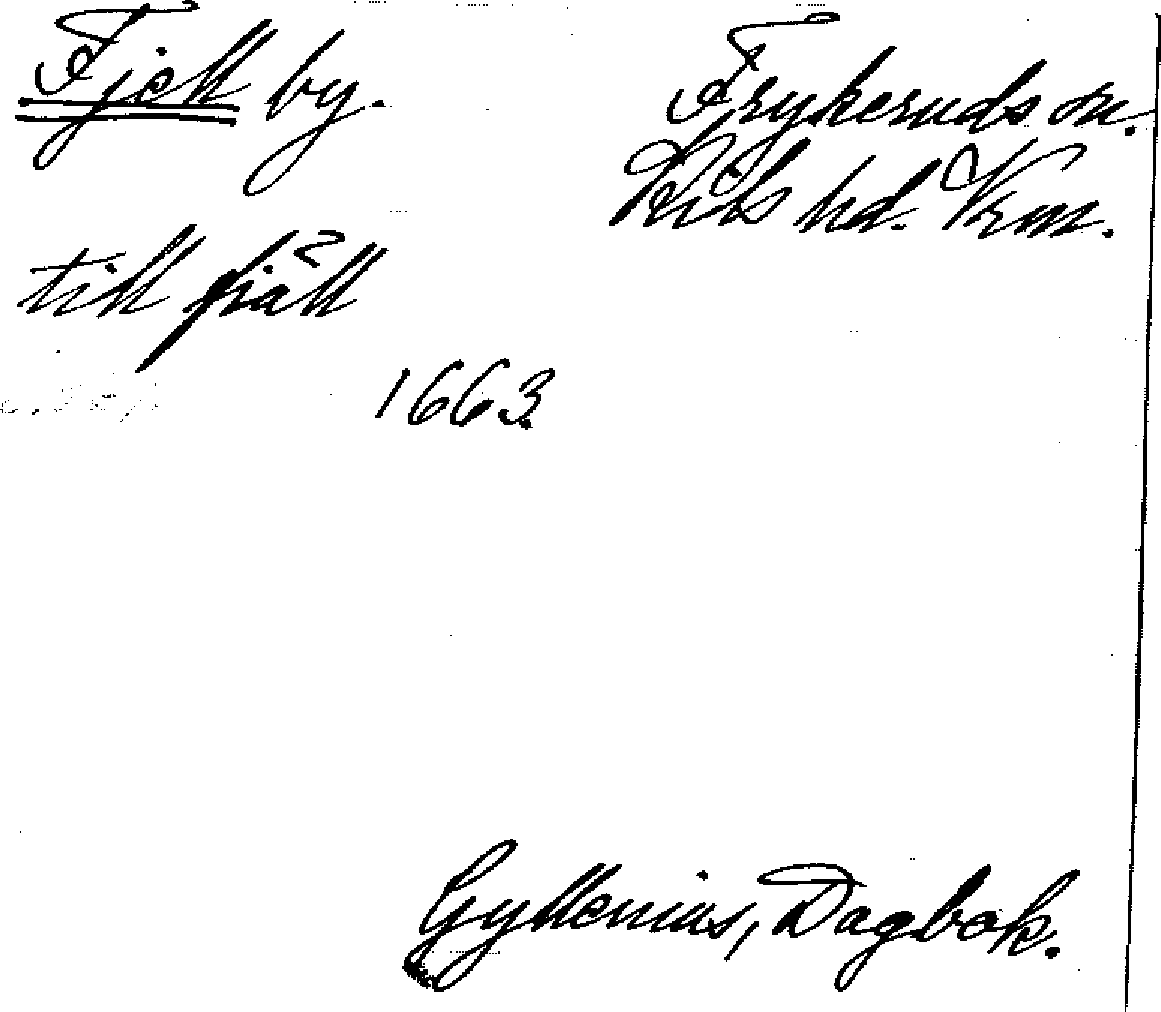 Fjell by.
Frykeruds sn.
Kils hd. Vrm.
till fjäll
1663.
Gyllenius, Dagbok.